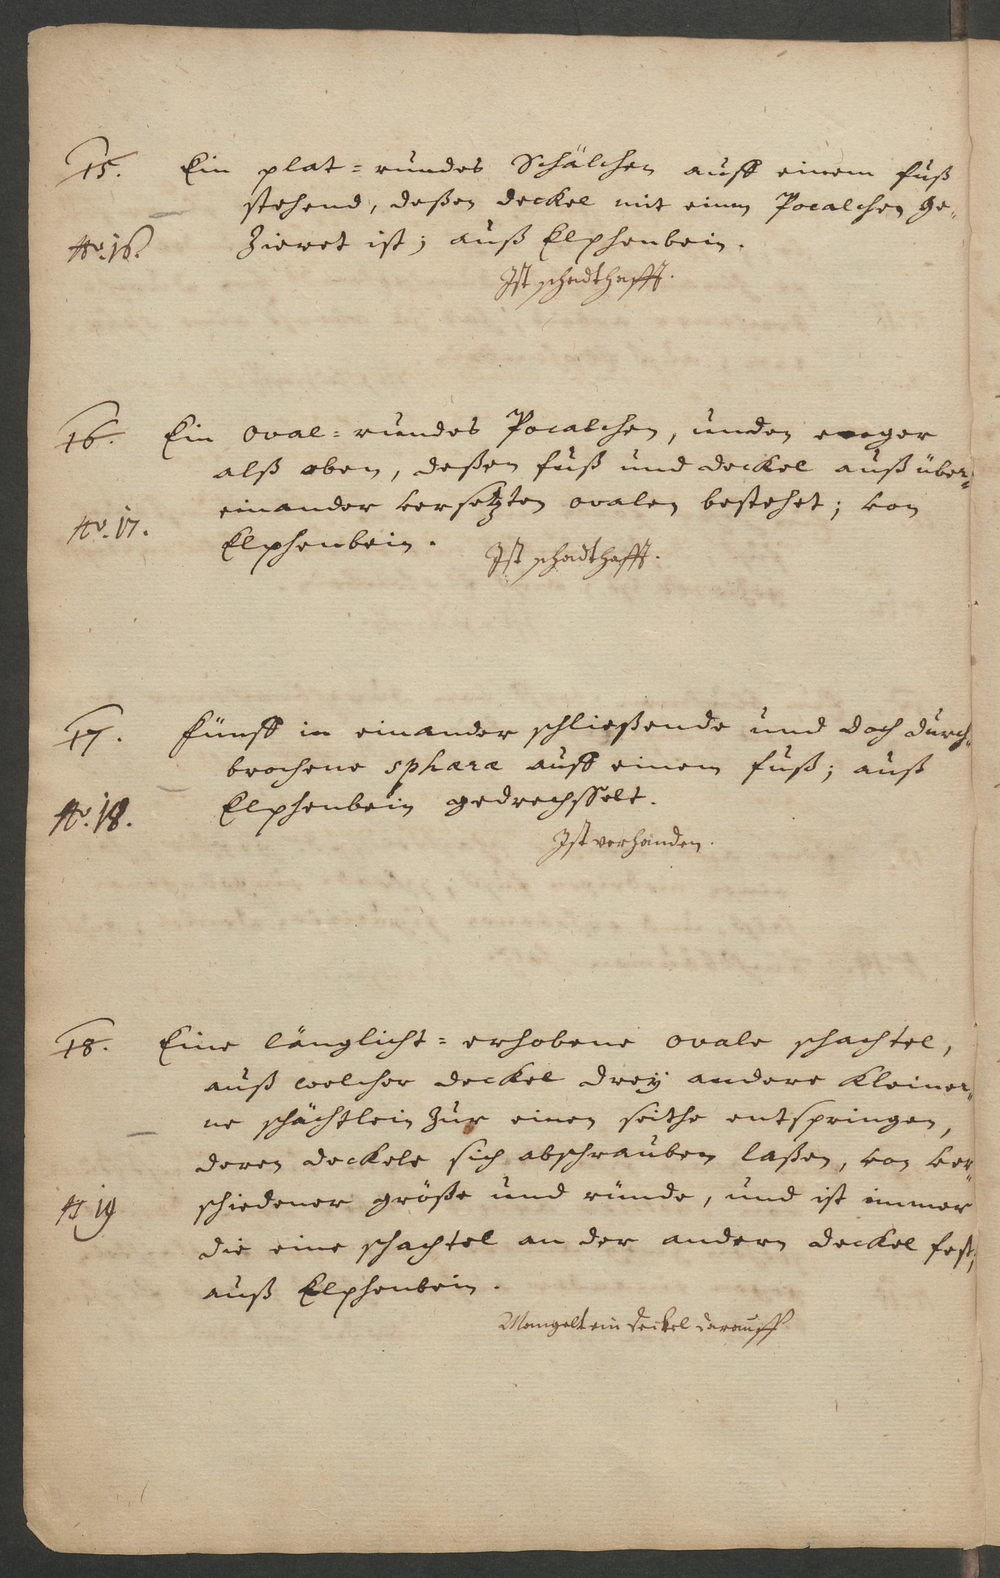 15. Ein plat=rundes Schälchen auff einem fuß
stehend, deßen deckel mit einem Pocalchen ge„
No. 16. Zieret ist; auß Elphenbein.
Ist schadthafft.
16. Ein oval=rundes Pocalchen, unden enger
alß oben, deßen fuß und deckel auß über„
einander versetzten ovalen bestehet; von
No. 17. Elphenbein.
Ist schadthafft.
17. Fünff in einander schließende und doch durch„
brochene sphæræ auff einem fuß; auß
No. 18. Elphenbein gedrechsselt.
Ist verhanden.
18. Eine länglicht=erhobene ovale schachtel,
auß welcher deckel drey andere kleiner„
ne schächtlein zur einen seithe entspringen,
deren deckele sich abschrauben laßen, von ver„
No 19 schiedener größe und ründe, und ist immer
die eine schachtel an der andern deckel fest,
auß Elphenbein.
Mangelt ein deckel darauff